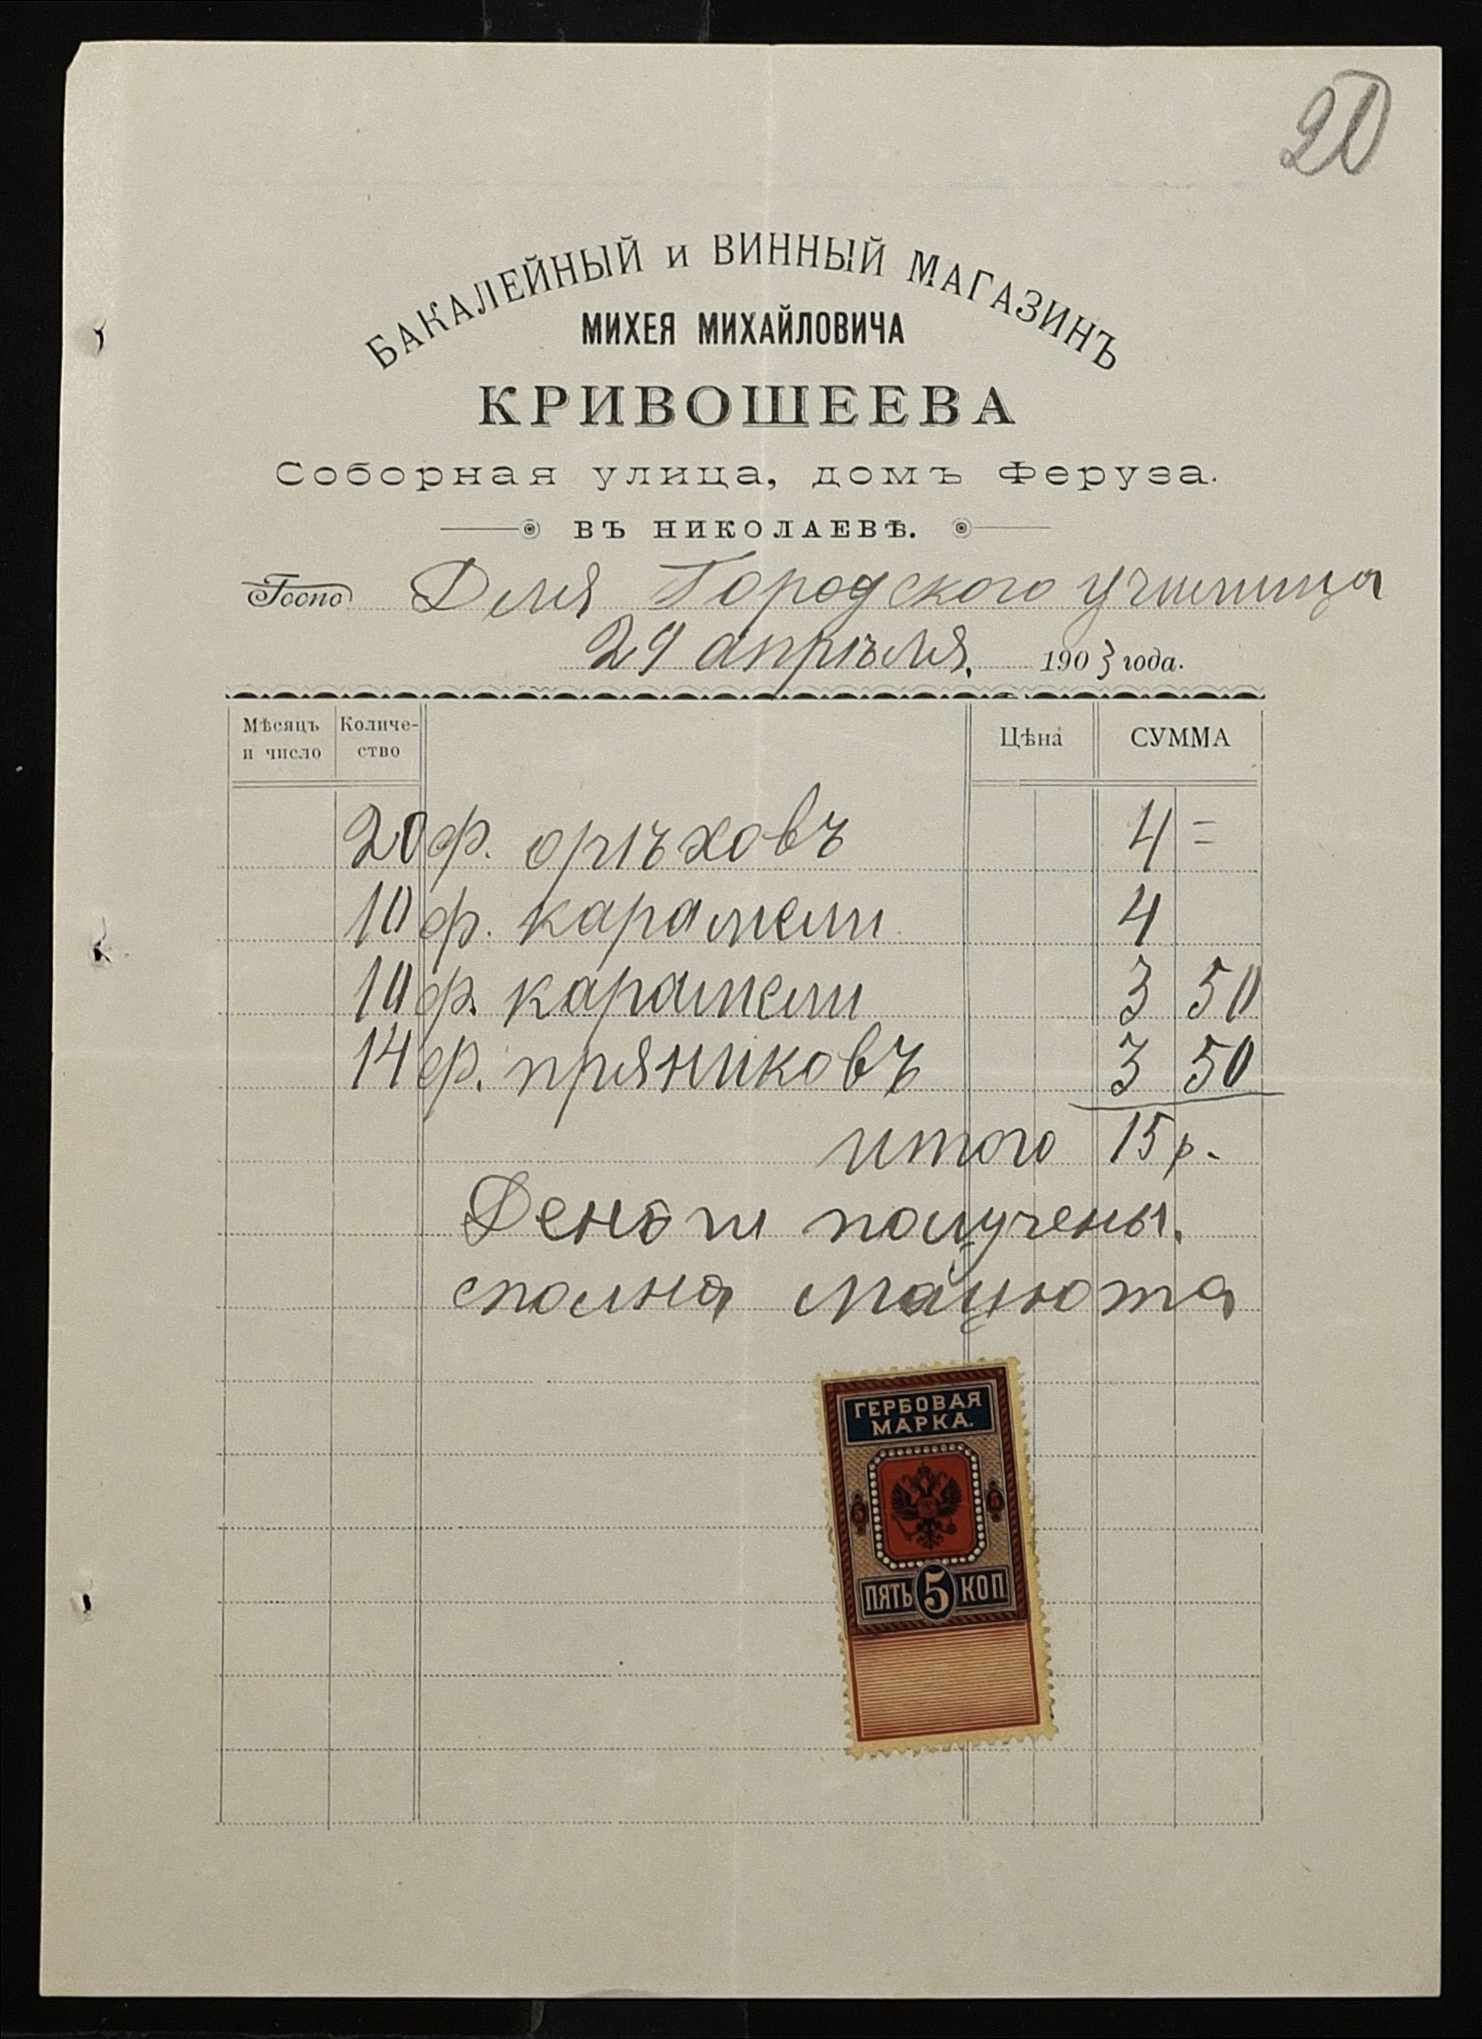 20
БАКАЛЕЙНЫЙ и ВИННЫЙ МАГАЗИНЪ
МИХЕЯ МИХАЙЛОВИЧА
КРИВОШЕЕВА
Соборная улица, домъ Феруза.
ВЪ НИКОЛАЕВѢ.
Госпо Для Городского училища
29 апрѣля 1903 года.
Мѣсяцъ и число Количество Цѣна СУММА
20 ф. орѣховъ 4 =
10 ф. карамели 4
10 ф. карамели 3 50
14 ф. пряниковъ 3 50
итого 15 р.
Деньги получены.
сполна Мацюта
ГЕРБОВАЯ
МАРКА.
5 5
ПЯТЬ 5 КОП